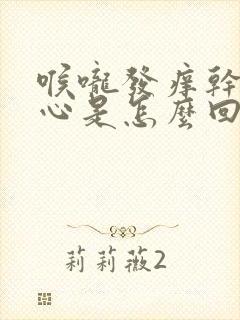 喉嚨發癢幹
心是怎麼回
莉莉薇2